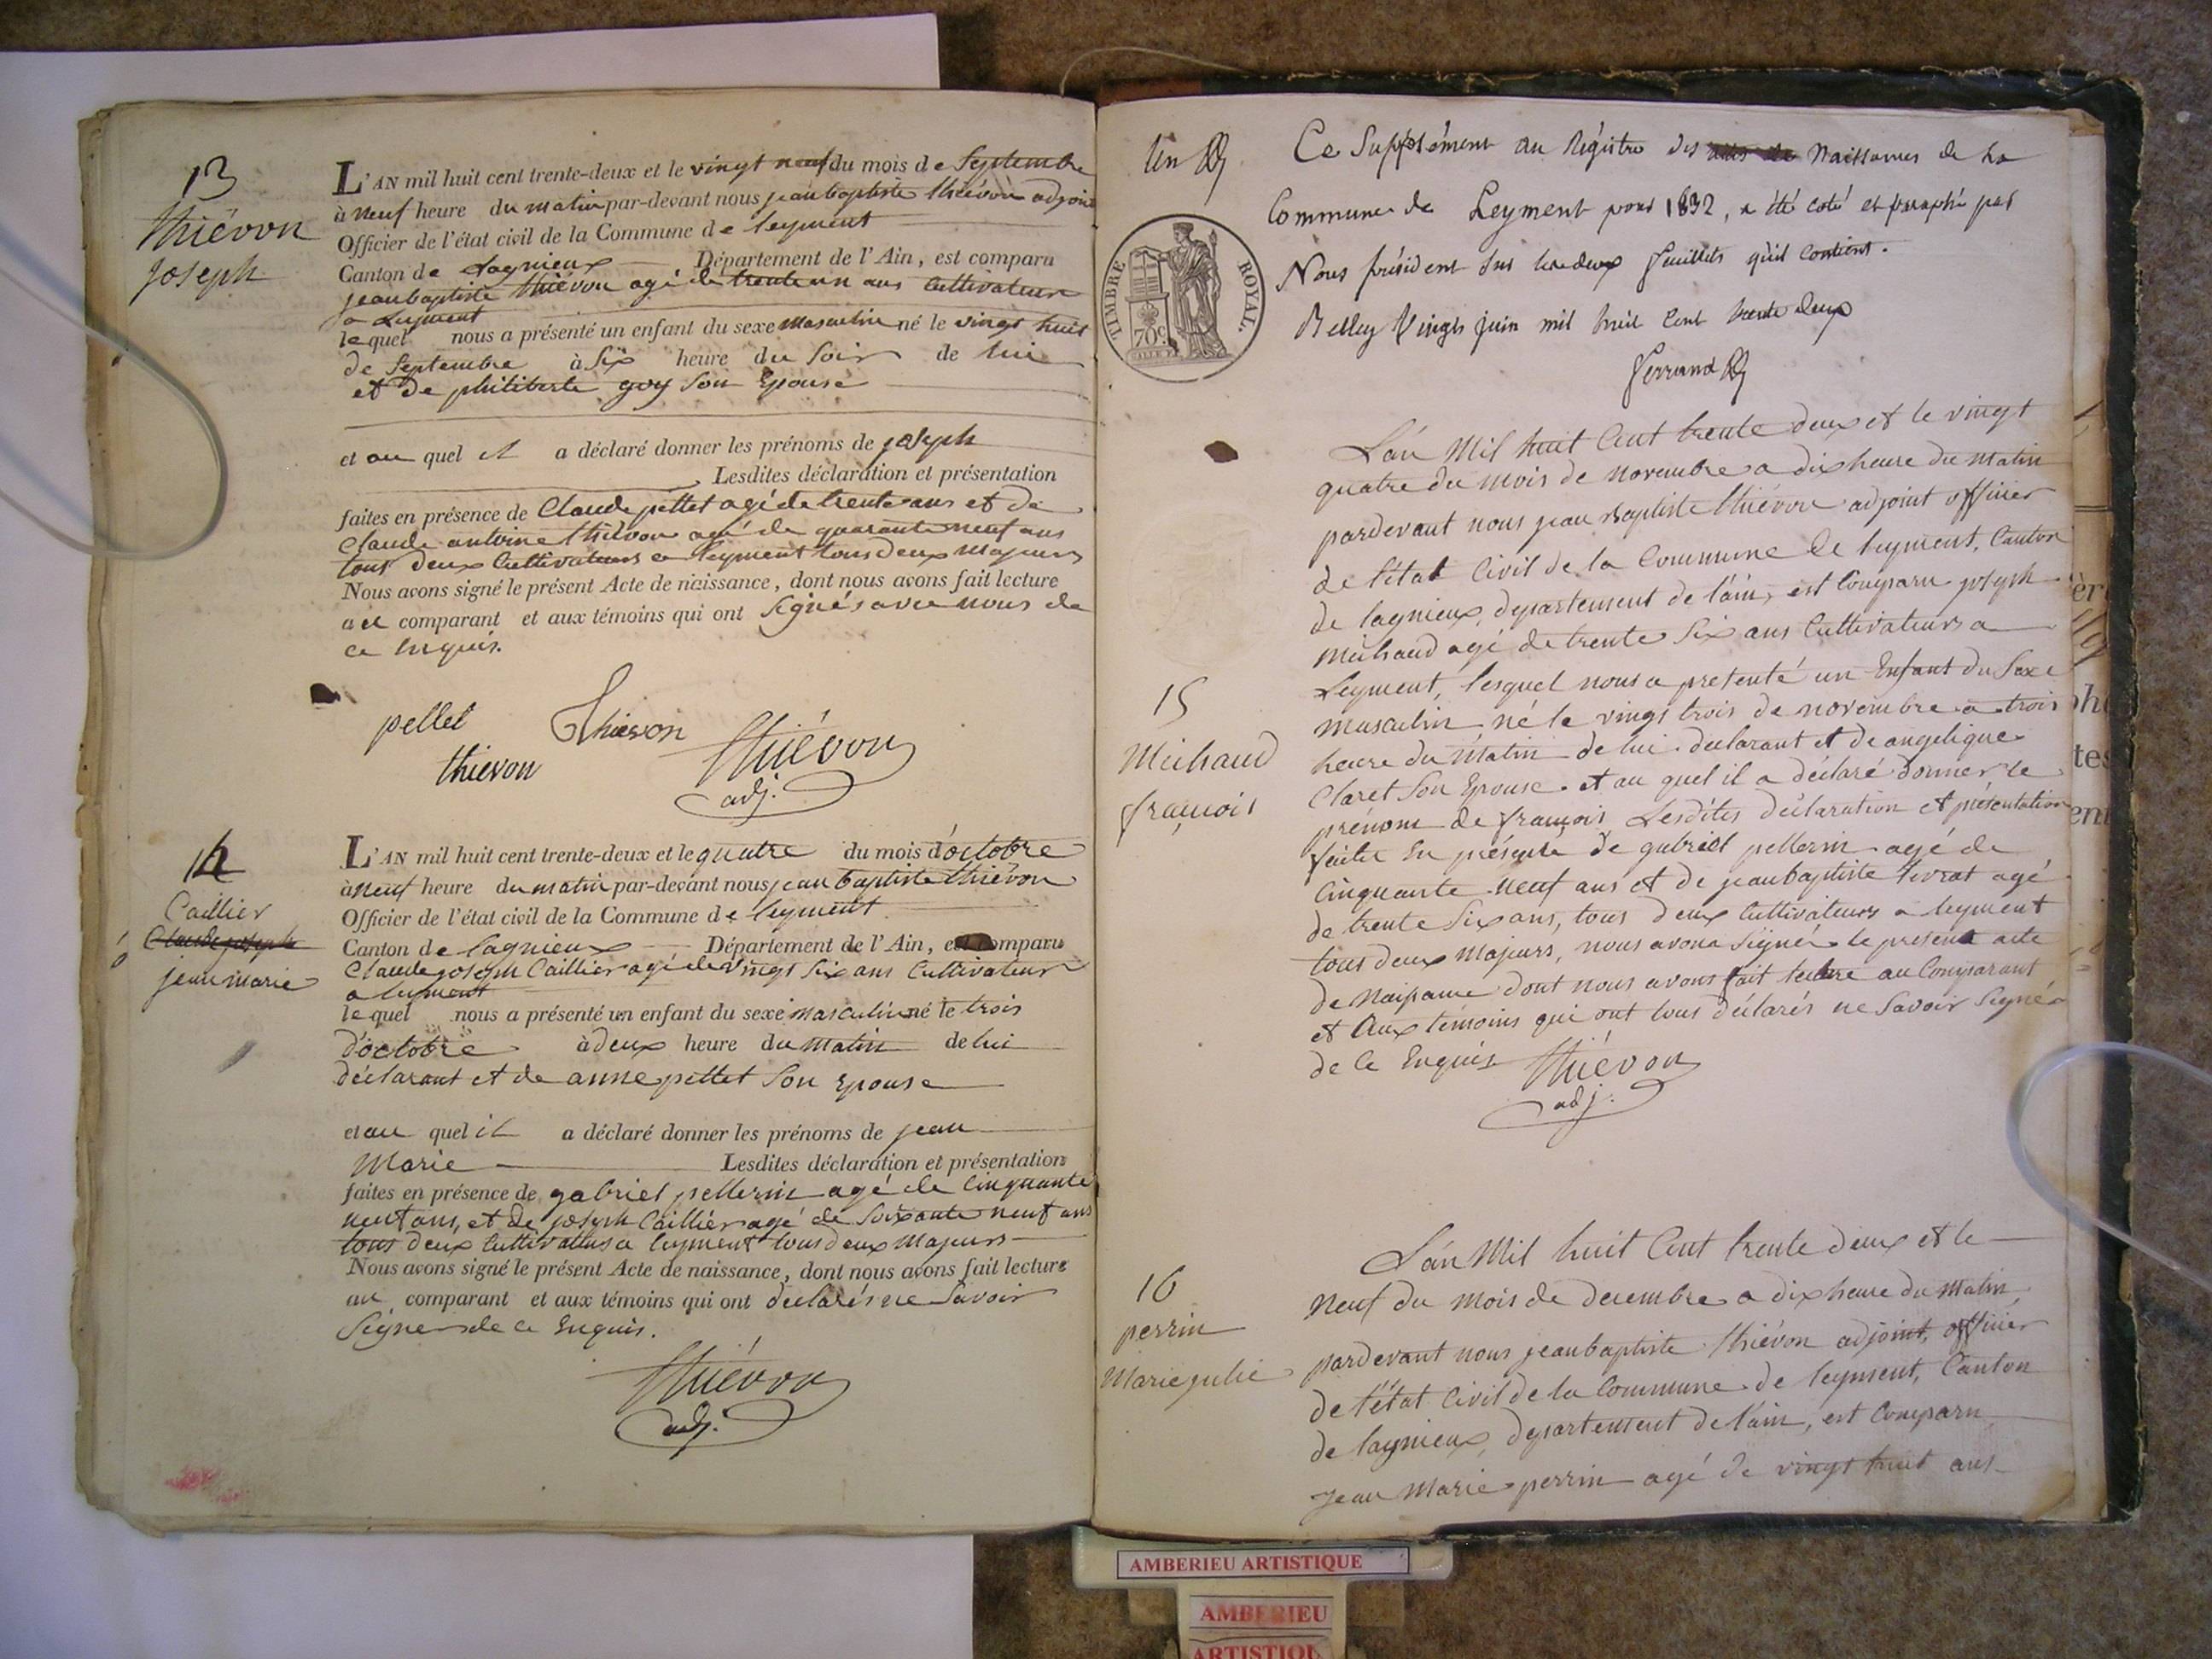 13
thiévon
joseph
L'AN mil huit cent trente-deux et le vingt neuf du mois de Septembre
à neuf heure du matin par-devant nous jean baptiste thiévon adjoint
Officier de l'état civil de la Commune de leyment
Canton de Lagnieux Département de l'Ain, est comparu
jean baptiste thiévon agé de trente un ans Cultivateur
a Leyment
lequel nous a présenté un enfant du sexe masculin né le vingt huit
de Septembre à Six heure du Soir de lui
et de philiberte goy Son Epouse
et au quel il a déclaré donner les prénoms de joseph
Lesdites déclaration et présentation
faites en présence de Claude pellet agé de trente ans et de
Claude antoine thiévon agé de quarante neuf ans
tous deux Cultivateurs a leyment tous deux Majeurs
Nous avons signé le présent Acte de naissance, dont nous avons fait lecture
au comparant et aux témoins qui ont Signés avec nous de
ce Enquis.
pellet Thievon thiévon
thievon adj.
14
Caillier
Claude joseph
jean marie
L'AN mil huit cent trente-deux et le quatre du mois d'octobre
à neuf heure du matin par-devant nous jean baptiste thiévon
Officier de l'état civil de la Commune de leyment
Canton de lagnieux Département de l'Ain, est comparu
Claude joseph Caillier agé de vingt Six ans Cultivateur
a leyment
lequel nous a présenté un enfant du sexe masculin né le trois
d'octobre à deux heure du matin de lui
déclarant et de anne pellet Son Epouse
et au quel il a déclaré donner les prénoms de jean
Marie Lesdites déclaration et présentation
faites en présence de gabriel pellerin agé de Cinquante
neuf ans, et de joseph Caillier agé de Soixante neuf ans
tous deux Cultivateurs a leyment tous deux Majeurs
Nous avons signé le présent Acte de naissance, dont nous avons fait lecture
au comparant et aux témoins qui ont déclarés ne Savoir
Signer de ce Enquis.
thiévon
adj.
Un
Ce Supplément au Régistre des Naissances de la
Commune de Leyment pour 1832, a été coté et paraphé par
Nous président Sus les deux feuillets qu'il contient.
Belley Vingt juin mil huit Cent trente deux
Ferrand
TIMBRE ROYAL.
70c.
L'an Mil huit Cent trente deux et le vingt
quatre du mois de novembre a dix heure du matin
pardevant nous jean Baptiste thiévon adjoint officier
de l'état Civil de la Commune de leyment, Canton
de lagnieux, departement de l'ain, est Comparu joseph
Michaud agé de trente Six ans Cultivateur a
Leyment, lesquel nous a presenté un Enfant du Sexe
15
Michaud
françois
masculin né le vingt trois de novembre a trois
heure du Matin de lui declarant et de angelique
Claret Son Epouse. et au quel il a déclaré donner le
prénom de françois Lesdites déclaration et présentation
faites En présence de gabriel pellerin agé de
Cinquante neuf ans et de jean baptiste livrat agé
de trente Six ans, tous deux Cultivateurs a leyment
tous deux Majeurs, nous avons Signé le present acte
de Naissance dont nous avons fait lecture au Comparant
et Aux temoins qui ont tous déclarés ne Savoir Signé
de Ce Enquis thiévon
adj.
16
perrin
Marie julie
L'an Mil huit Cent trente deux et le
neuf du mois de decembre a dix heure du Matin,
pardevant nous jean baptiste thiévon adjoint, officier
de l'état Civil de la Commune de leyment, Canton
de lagnieux, departement de l'ain, est Comparu
jean Marie perrin agé de vingt huit ans
AMBERIEU ARTISTIQUE
AMBERIEU
ARTISTIQU